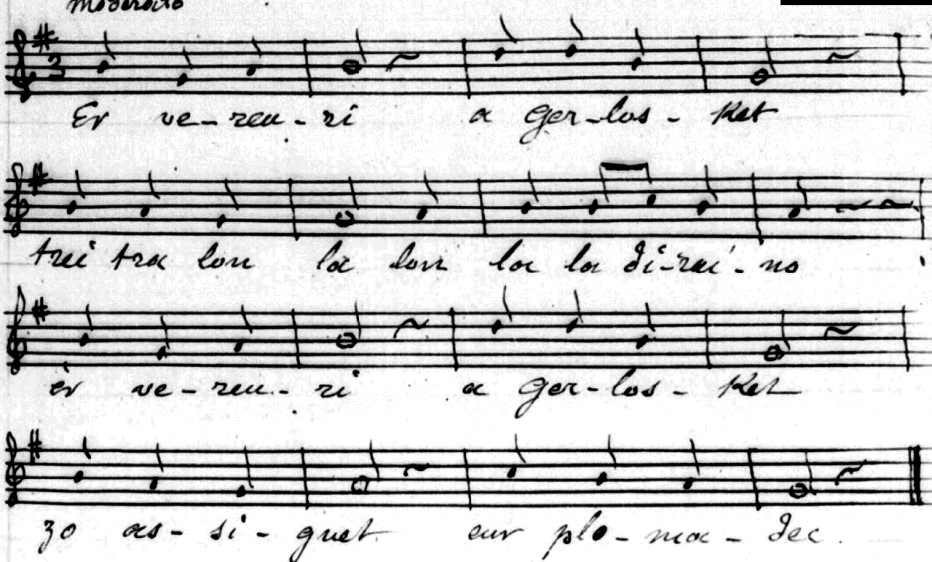 moderato
3
Er ve-reu-ri a Ger-los-ket
trei tra lon la lon la la di-rei-no
er ve-reu-ri a Ger-los-ket
zo as-si-gnet eur plo-ma-dec.